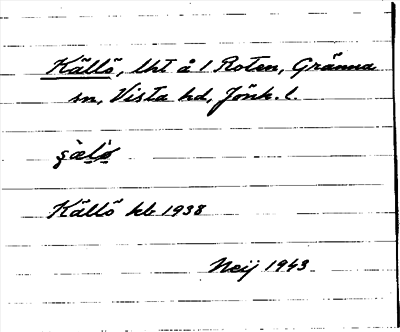 Källö, lht å 1 Roten, Gränna
sn, Vista hd, Jönk. l.
Källö kb 1938
Neij 1943